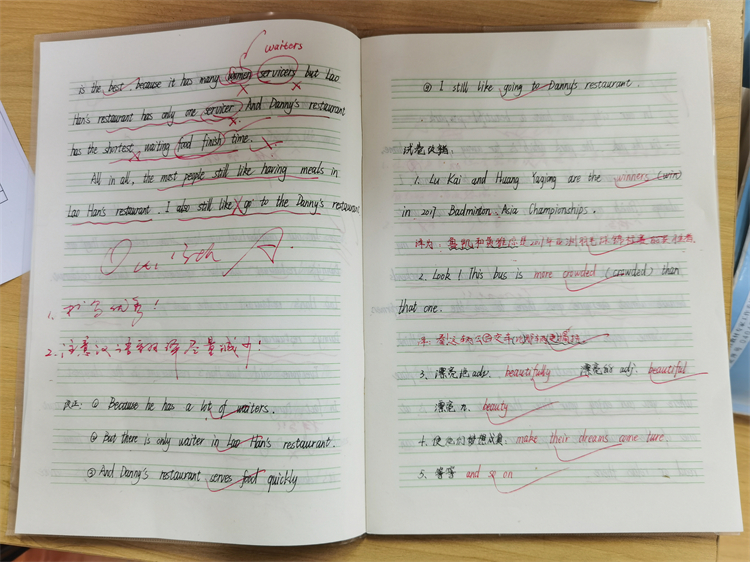 waitors
is the best. because it has many women servicers but Lao
Han's restaurant has only one servicer. And Danny's restaurant
has the shortest waiting food finish time.
All in all, the most people still like having meals in
Lao Han's restaurant. I also still like go to the Danny's restaurant
A.
1. 书写优秀!
2. 注意汉语
改正: ① Because he has a lot of waitors.
② But there is only waiter in Lao Han's restaurant.
③ And Danny's restaurant serves food quickly
④ I still like going to Danny's restaurant.
1. Lu Kai and Huang Yaqiong are the winners (win)
in 2017 Badminton Asia Championships.
2. Look! This bus is more crowded (crowded) than
that one.
3. 漂亮地 adv. beautifully 漂亮的 adj. beautiful
漂亮 n. beauty
4. 使他们梦想成真: make their dreams come ture.
5. 等等 and so on